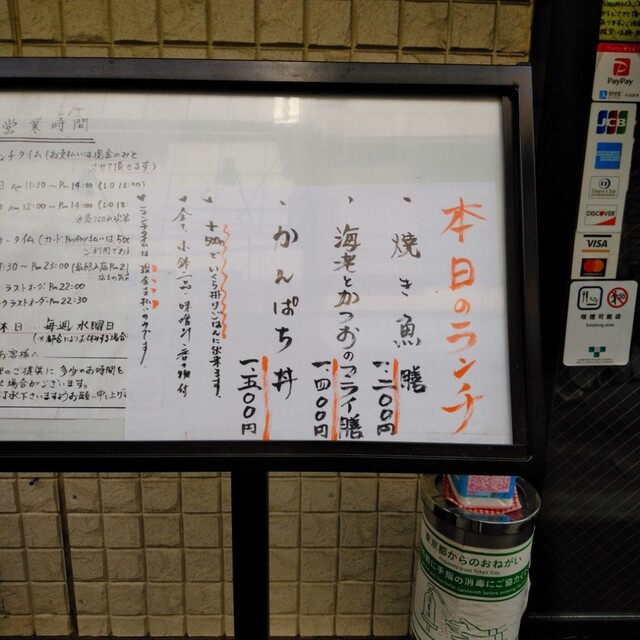 本日のランチ
、焼き魚膳
一二〇〇円
、海老とかつおのフライ膳
一四〇〇円
、かんぱち丼
一五〇〇円
+500円でいくら掛けごはんに出来ます。
全て、小鉢一品・味噌汁・香の物付
ランチタイムは現金お支払いのみです。
営業時間
ンチタイム(お支払いは現金のみと
させて頂きます)
AM 11:30〜PM 14:00 (LO 13:30)
AM 12:00〜PM 14:00 (LO 13
※売り切れ次第
9:30〜PM 23:00
ラストオーダーPM 22:00
クラストオーダーPM 22:30
休日 毎週水曜日
お客様へ
多少お時間を
く場合がございます。
了承下さいますようお願い申し上げ
PayPay
JCB
AMERICAN EXPRESS
Diners Club
DISCOVER
VISA
mastercard
喫煙可能店
Smoking area
東京都からのおねがい
手指の消毒にご協力く